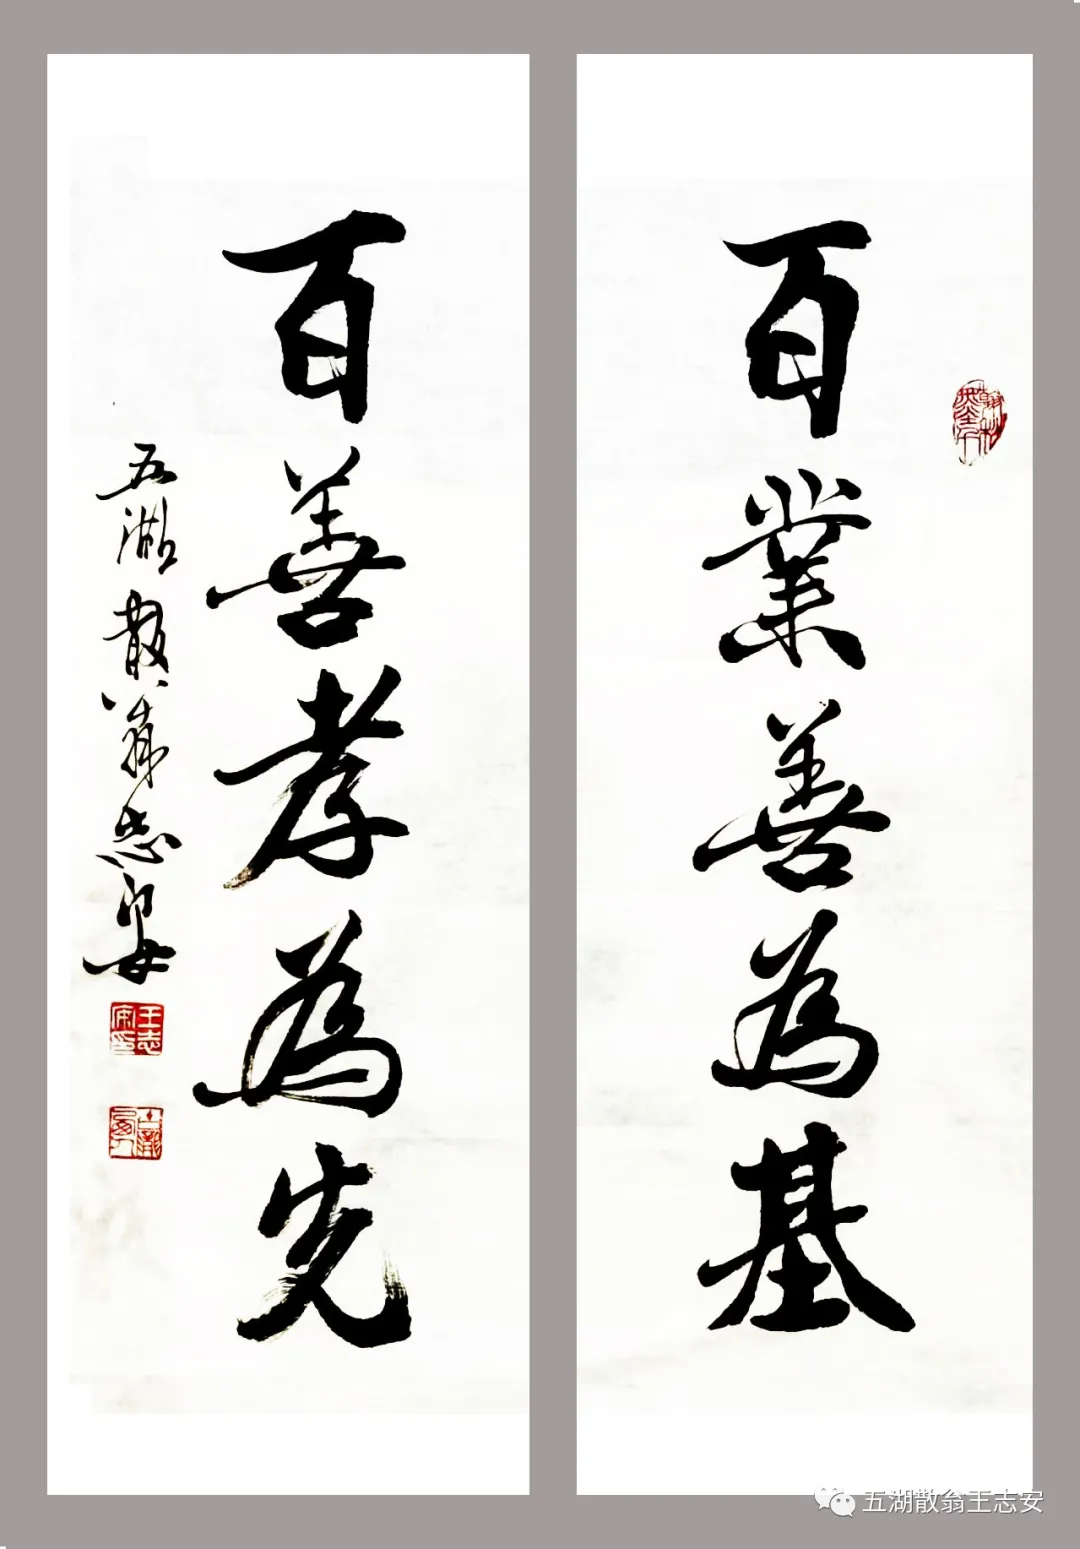 百業善為基
百善孝為先
五湖散翁志安
王志安印
五湖散翁王志安